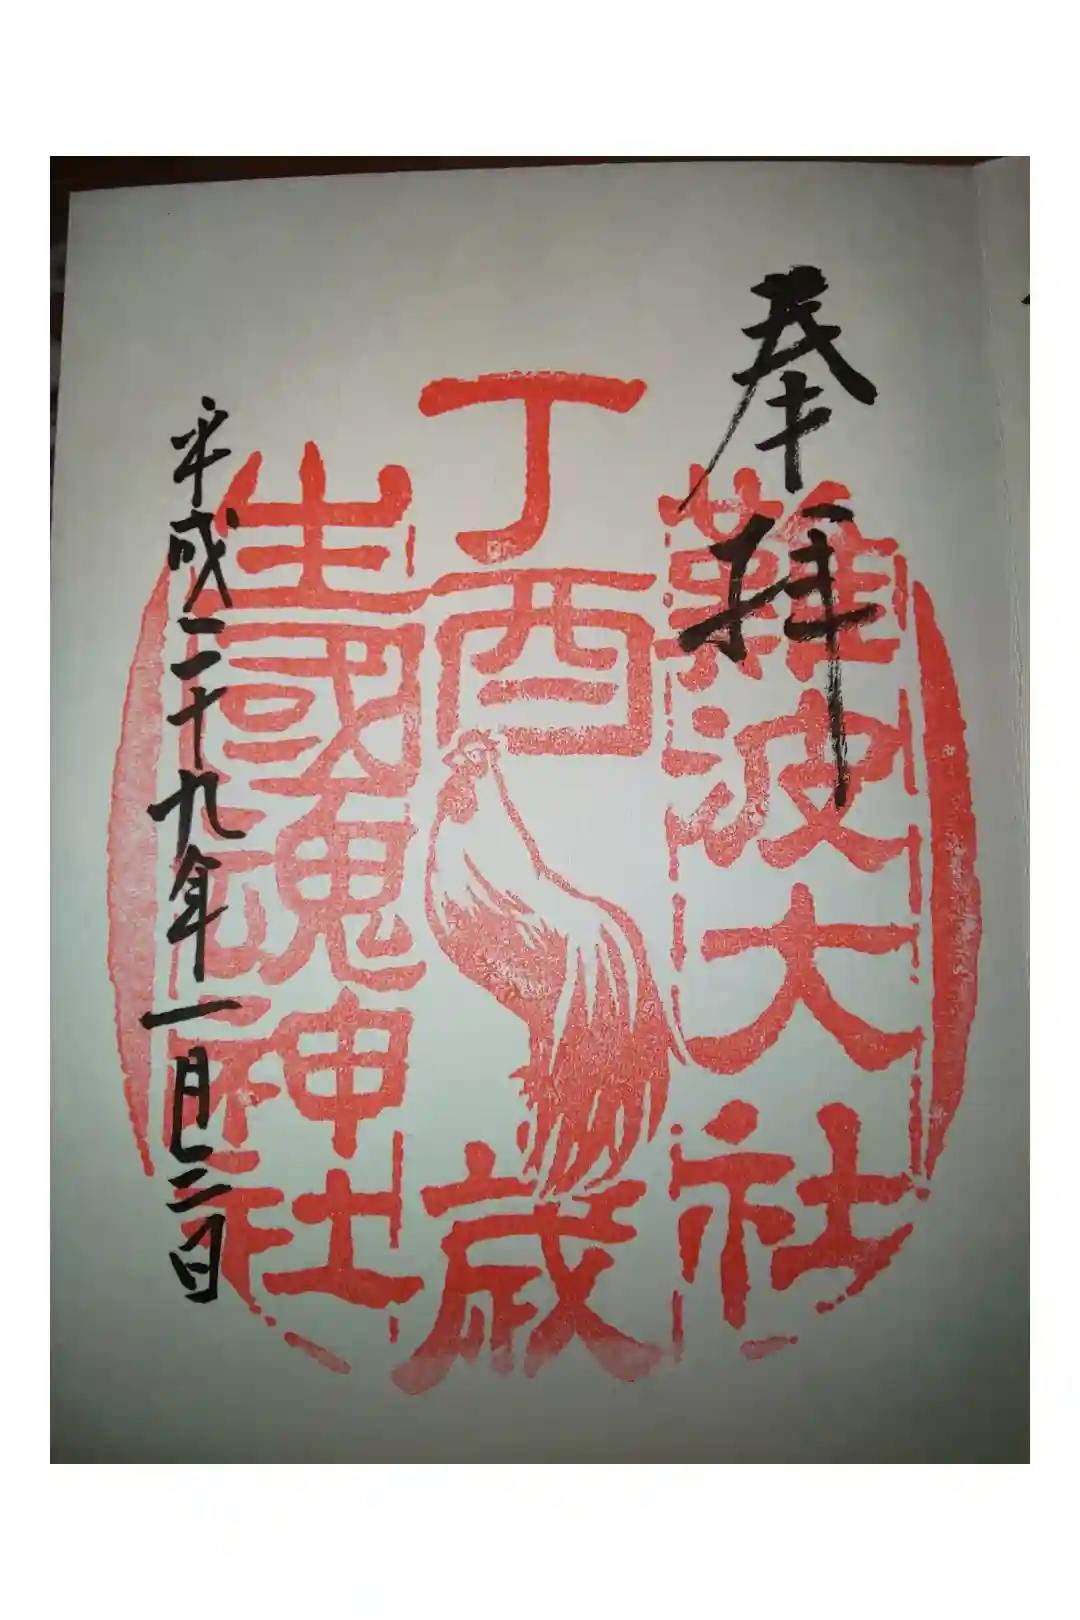 奉拝
難波大社
丁酉歳
生國魂神社
平成二十九年一月二日